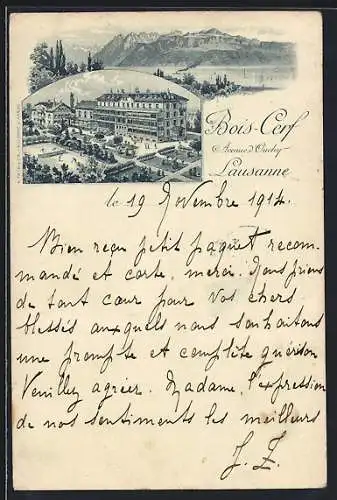 Bois-Cerf
Avenue d'Ouchy
Lausanne
le 19 Novembre 1914.
Bien reçu petit paquet recom-
mandé et carte, merci. Nous prions
de tout cœur pour vos chers
blessés auxquels nous souhaitons
une prompte et complète guérison
Veuillez agréer, Madame, l'expression
de nos sentiments les meilleurs
J. Z.